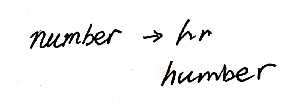 number → hr
humber